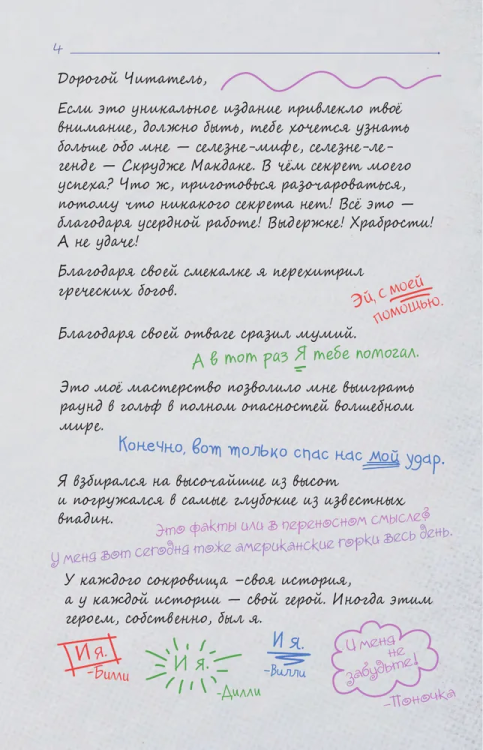 4
Дорогой Читатель,
Если это уникальное издание привлекло твоё
внимание, должно быть, тебе хочется узнать
больше обо мне — селезне-мифе, селезне-ле-
генде — Скрудже Макдаке. В чём секрет моего
успеха? Что ж, приготовься разочароваться,
потому что никакого секрета нет! Всё это —
благодаря усердной работе! Выдержке! Храбрости!
А не удаче!
Благодаря своей смекалке я перехитрил
греческих богов.
Эй, с моей
помощью.
Благодаря своей отваге сразил мумий.
А в тот раз Я тебе помогал.
Это моё мастерство позволило мне выиграть
раунд в гольф в полном опасностей волшебном
мире.
Конечно, вот только спас нас мой удар.
Я взбирался на высочайшие из высот
и погружался в самые глубокие из известных
впадин.
Это факты или в переносном смысле?
У меня вот сегодня тоже американские горки весь день.
У каждого сокровища –своя история,
а у каждой истории — свой герой. Иногда этим
героем, собственно, был я.
И я.
-Билли
И я.
-Дилли
И я.
-Вилли
И меня
не
забудьте!
-Поночка